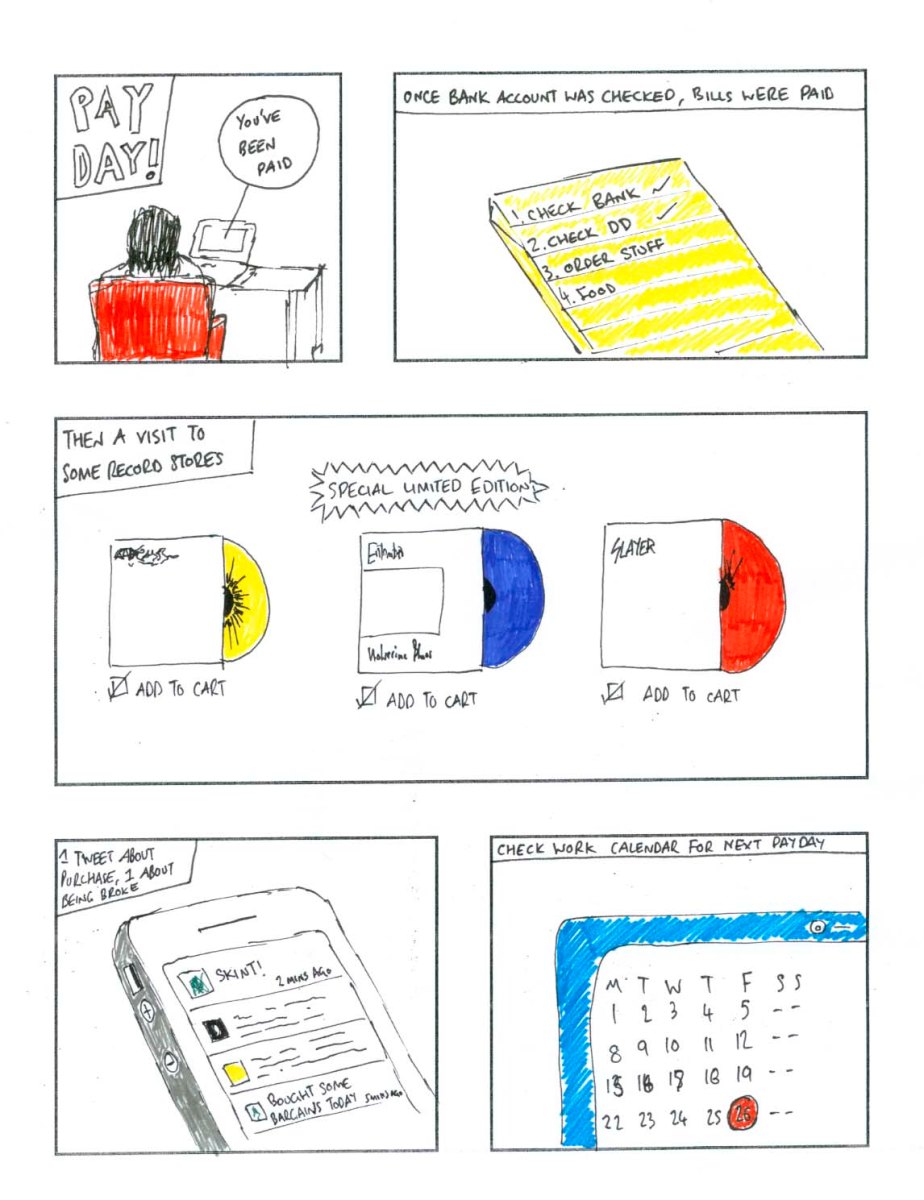 PAY
DAY!
YOU'VE
BEEN
PAID
ONCE BANK ACCOUNT WAS CHECKED, BILLS WERE PAID
1. CHECK BANK ✓
2. CHECK DD ✓
3. ORDER STUFF
4. FOOD
THEN A VISIT TO
SOME RECORD STORES
SPECIAL LIMITED EDITION
Entombed
Wolverine Blues
SLAYER
ADD TO CART
ADD TO CART
ADD TO CART
1 TWEET ABOUT
PURCHASE, 1 ABOUT
BEING BROKE
SKINT!
2 MINS AGO
BOUGHT SOME
BARGAINS TODAY 5 MINS AGO
CHECK WORK CALENDAR FOR NEXT PAYDAY
M T W T F S S
1 2 3 4 5 - -
8 9 10 11 12 - -
15 16 17 18 19 - -
22 23 24 25 26 - -